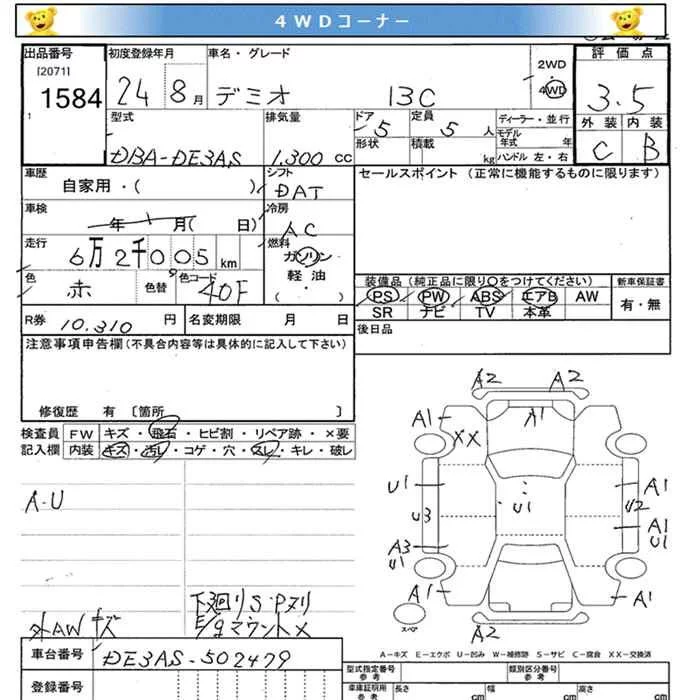 4WDコーナー
出品番号 初度登録年月 車名・グレード 2WD 評価点
[2071]
1584 24 8月 デミオ 13C 4WD 3.5
型式 排気量 ドア 定員 ディーラー・並行 外装 内装
モデル年式 年
DBA-DE3AS 1,300cc 5 5人 C B
形状 積載 kg ハンドル 左・右
車歴 シフト セールスポイント (正常に機能するものに限ります)
自家用・( ) DAT
車検 冷房
年 月( 日) AC
走行 燃料
6万2千005km ガソリン
軽油
( )
色 色替 色コード 装備品(純正品に限り○をつけてください) 新車保証書
ホ 40F PS PW ABS エアB AW 有・無
SR ナビ TV 本革
R券 10,310円 名変期限 月 日 後日品
注意事項申告欄(不具合内容等は具体的に記入して下さい)
修復歴 有 〔箇所 〕
検査員 FW キズ・飛石・ヒビ割・リペア跡・×要
記入欄 内装 キズ・汚レ・コゲ・穴・スレ・キレ・破レ
A2 A2
A1 A1
XX
U1 U1 A1
U3 U2
A3 A1
U1 U1
A1 A1
スペア
A2
A-U
下廻りS・Pヌリ
外AWキズ E/gマウント×
A-キズ E-エクボ U-凹み W-補修跡 S-サビ C-腐食 XX-交換済
車台番号 DE3AS-502479
型式指定番号 参考 類別区分番号 参考
登録番号
車庫証明用 参考 長さ cm 幅 cm 高さ cm